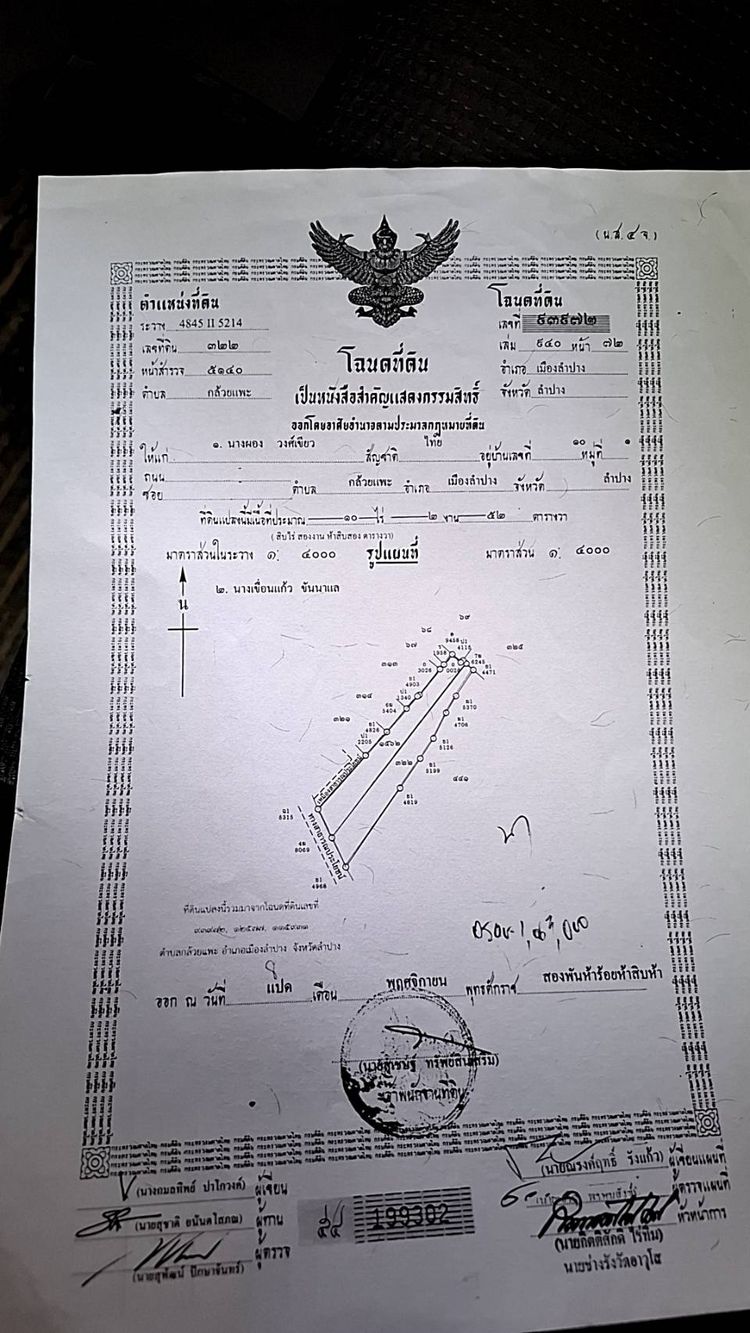 (น.ส.๔ จ.)
ตำแหน่งที่ดิน
ระวาง 4845 II 5214
เลขที่ดิน ๓๒๒
หน้าสำรวจ ๕๑๔๐
ตำบล กล้วยแพะ
โฉนดที่ดิน
เลขที่ ๙๓๙๗๒
เล่ม ๙๔๐ หน้า ๗๒
อำเภอ เมืองลำปาง
จังหวัด ลำปาง
โฉนดที่ดิน
เป็นหนังสือสำคัญแสดงกรรมสิทธิ์
ออกโดยอาศัยอำนาจตามประมวลกฎหมายที่ดิน
ให้แก่ ๑. นางผอง วงศ์เขียว สัญชาติ ไทย อยู่บ้านเลขที่ ๑๐ หมู่ที่ ๑
ถนน
ซอย ตำบล กล้วยแพะ อำเภอ เมืองลำปาง จังหวัด ลำปาง
ที่ดินแปลงนี้มีเนื้อที่ประมาณ ๑๐ ไร่ ๒ งาน ๕๒ ตารางวา
(สิบไร่ สองงาน ห้าสิบสอง ตารางวา)
มาตราส่วนในระวาง ๑: ๔๐๐๐ รูปแผนที่ มาตราส่วน ๑: ๔๐๐๐
น
๒. นางเขื่อนแก้ว ขันนาแล
๖๙
๖๘
๖๗
๓๒๕
๓๑๓
๓๑๔
๓๒๑
๑๕๖๒
๓๒๒
๔๔๑
9458
4115
1958
3026
6245
4471
4903
1340
5404
4826
2205
5370
4706
5126
5199
4819
5315
8069
4968
ทางสาธารณประโยชน์
ที่ดินแปลงนี้รวมมาจากโฉนดที่ดินเลขที่
๙๓๙๗๒, ๑๒๕๗๗, ๑๑๕๙๓๑
ตำบลกล้วยแพะ อำเภอเมืองลำปาง จังหวัดลำปาง
ออก ณ วันที่ แปด เดือน พฤศจิกายน พุทธศักราช สองพันห้าร้อยห้าสิบห้า
เจ้าพนักงานที่ดิน
(นางกมลทิพย์ ปาโกวงค์) ผู้เขียน
(นายสุชาติ อนันตโสภณ) ผู้ทาน
(นายสุพัฒน์ ปักษาจันทร์) ผู้ตรวจ
199302
(นายณรงค์ฤทธิ์ รังแก้ว) ผู้เขียนแผนที่
ผู้ตรวจแผนที่
หัวหน้าการ
(นายกิตติศักดิ์ ไร่ทิม)
นายช่างรังวัดอาวุโส